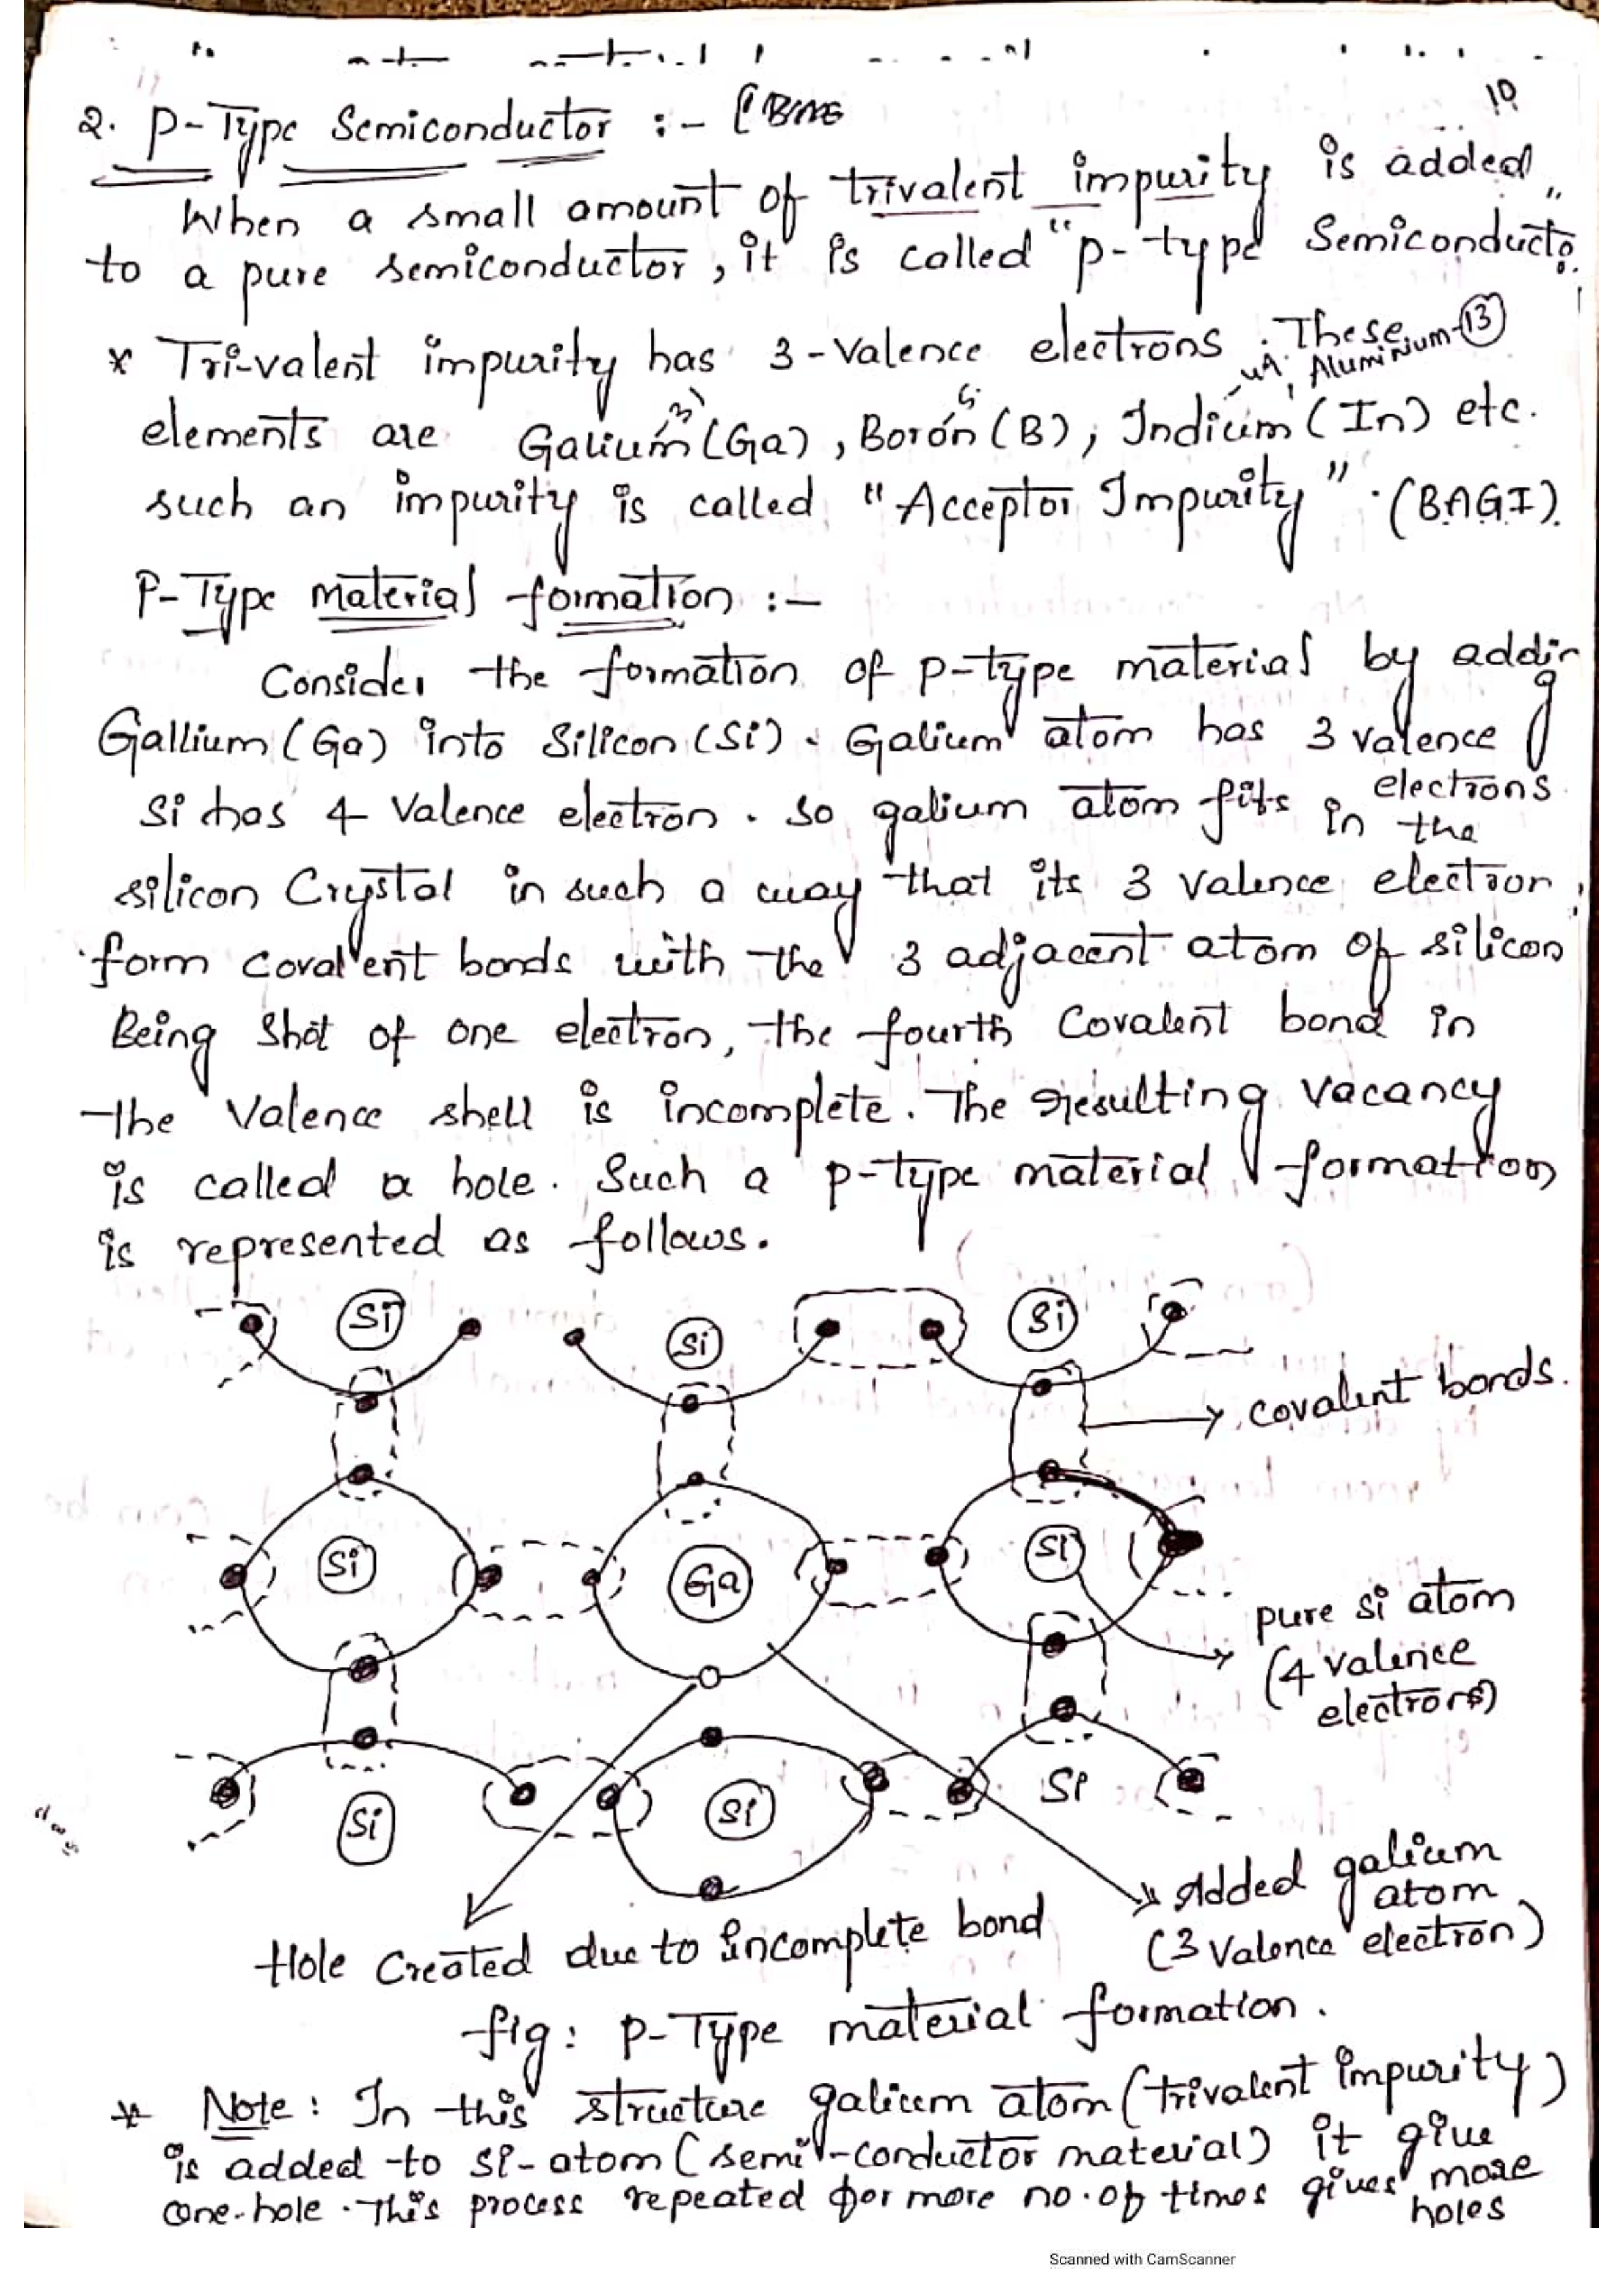 10
2. P-Type Semiconductor :-
When a small amount of trivalent impurity is added
to a pure semiconductor, it is called "p-type Semiconducto
* Tri-valent impurity has 3-valence electrons. These
Aluminium-13
elements are Galium (Ga), Boron (B), Indium (In) etc.
such an impurity is called "Acceptor Impurity". (BAGI).
P-Type material formation :-
Consider the formation of p-type material by adding
Gallium (Ga) into Silicon (Si). Galium atom has 3 valence
electrons
Si has 4 Valence electron. so galium atom fits in the
silicon Crystal in such a way that its 3 valence electron,
form covalent bonds with the 3 adjacent atom of silicon
Being Shot of one electron, the fourth Covalent bond in
the Valence shell is incomplete. The resulting vacancy
is called a hole. Such a p-type material formation
is represented as follows.
Si Si Si
covalent bonds.
Si Ga Si
pure si atom
(4 valence
electrons)
Si Si Si
Added galium
atom
(3 valence electron)
Hole Created due to incomplete bond
fig: P-Type material formation.
* Note: In this structure galium atom (trivalent impurity)
is added to si-atom (semi-conductor material) it give
one-hole. This process repeated for more no.of times gives more
holes
Scanned with CamScanner